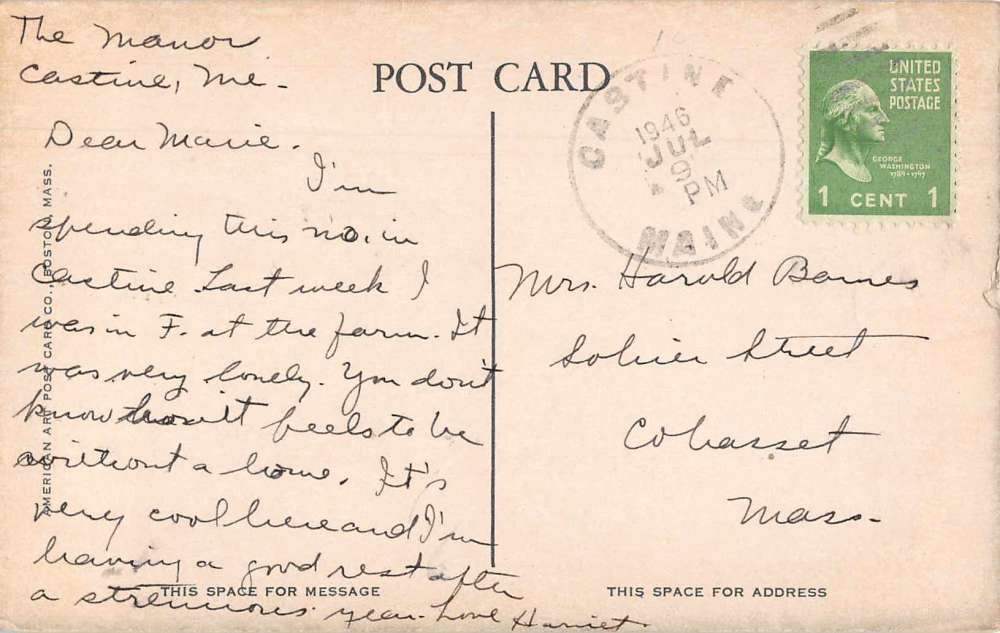 The Manor
Castine, Me.
Dear Marie.
I'm
spending this mo. in
Castine Last week I
was in F. at the farm. It
was very lonely. You don't
know how it feels to be
without a home. It's
very cool here and I'm
having a good rest after
a strenuous year. Love Harriet.
AMERICAN ART POST CARD CO., BOSTON, MASS.
THIS SPACE FOR MESSAGE
POST CARD
CASTINE
1946
JUL
9
PM
MAINE
UNITED
STATES
POSTAGE
GEORGE
WASHINGTON
1789-1797
1 CENT 1
Mrs. Harold Barnes
Sohier Street
Cohasset
Mass.
THIS SPACE FOR ADDRESS